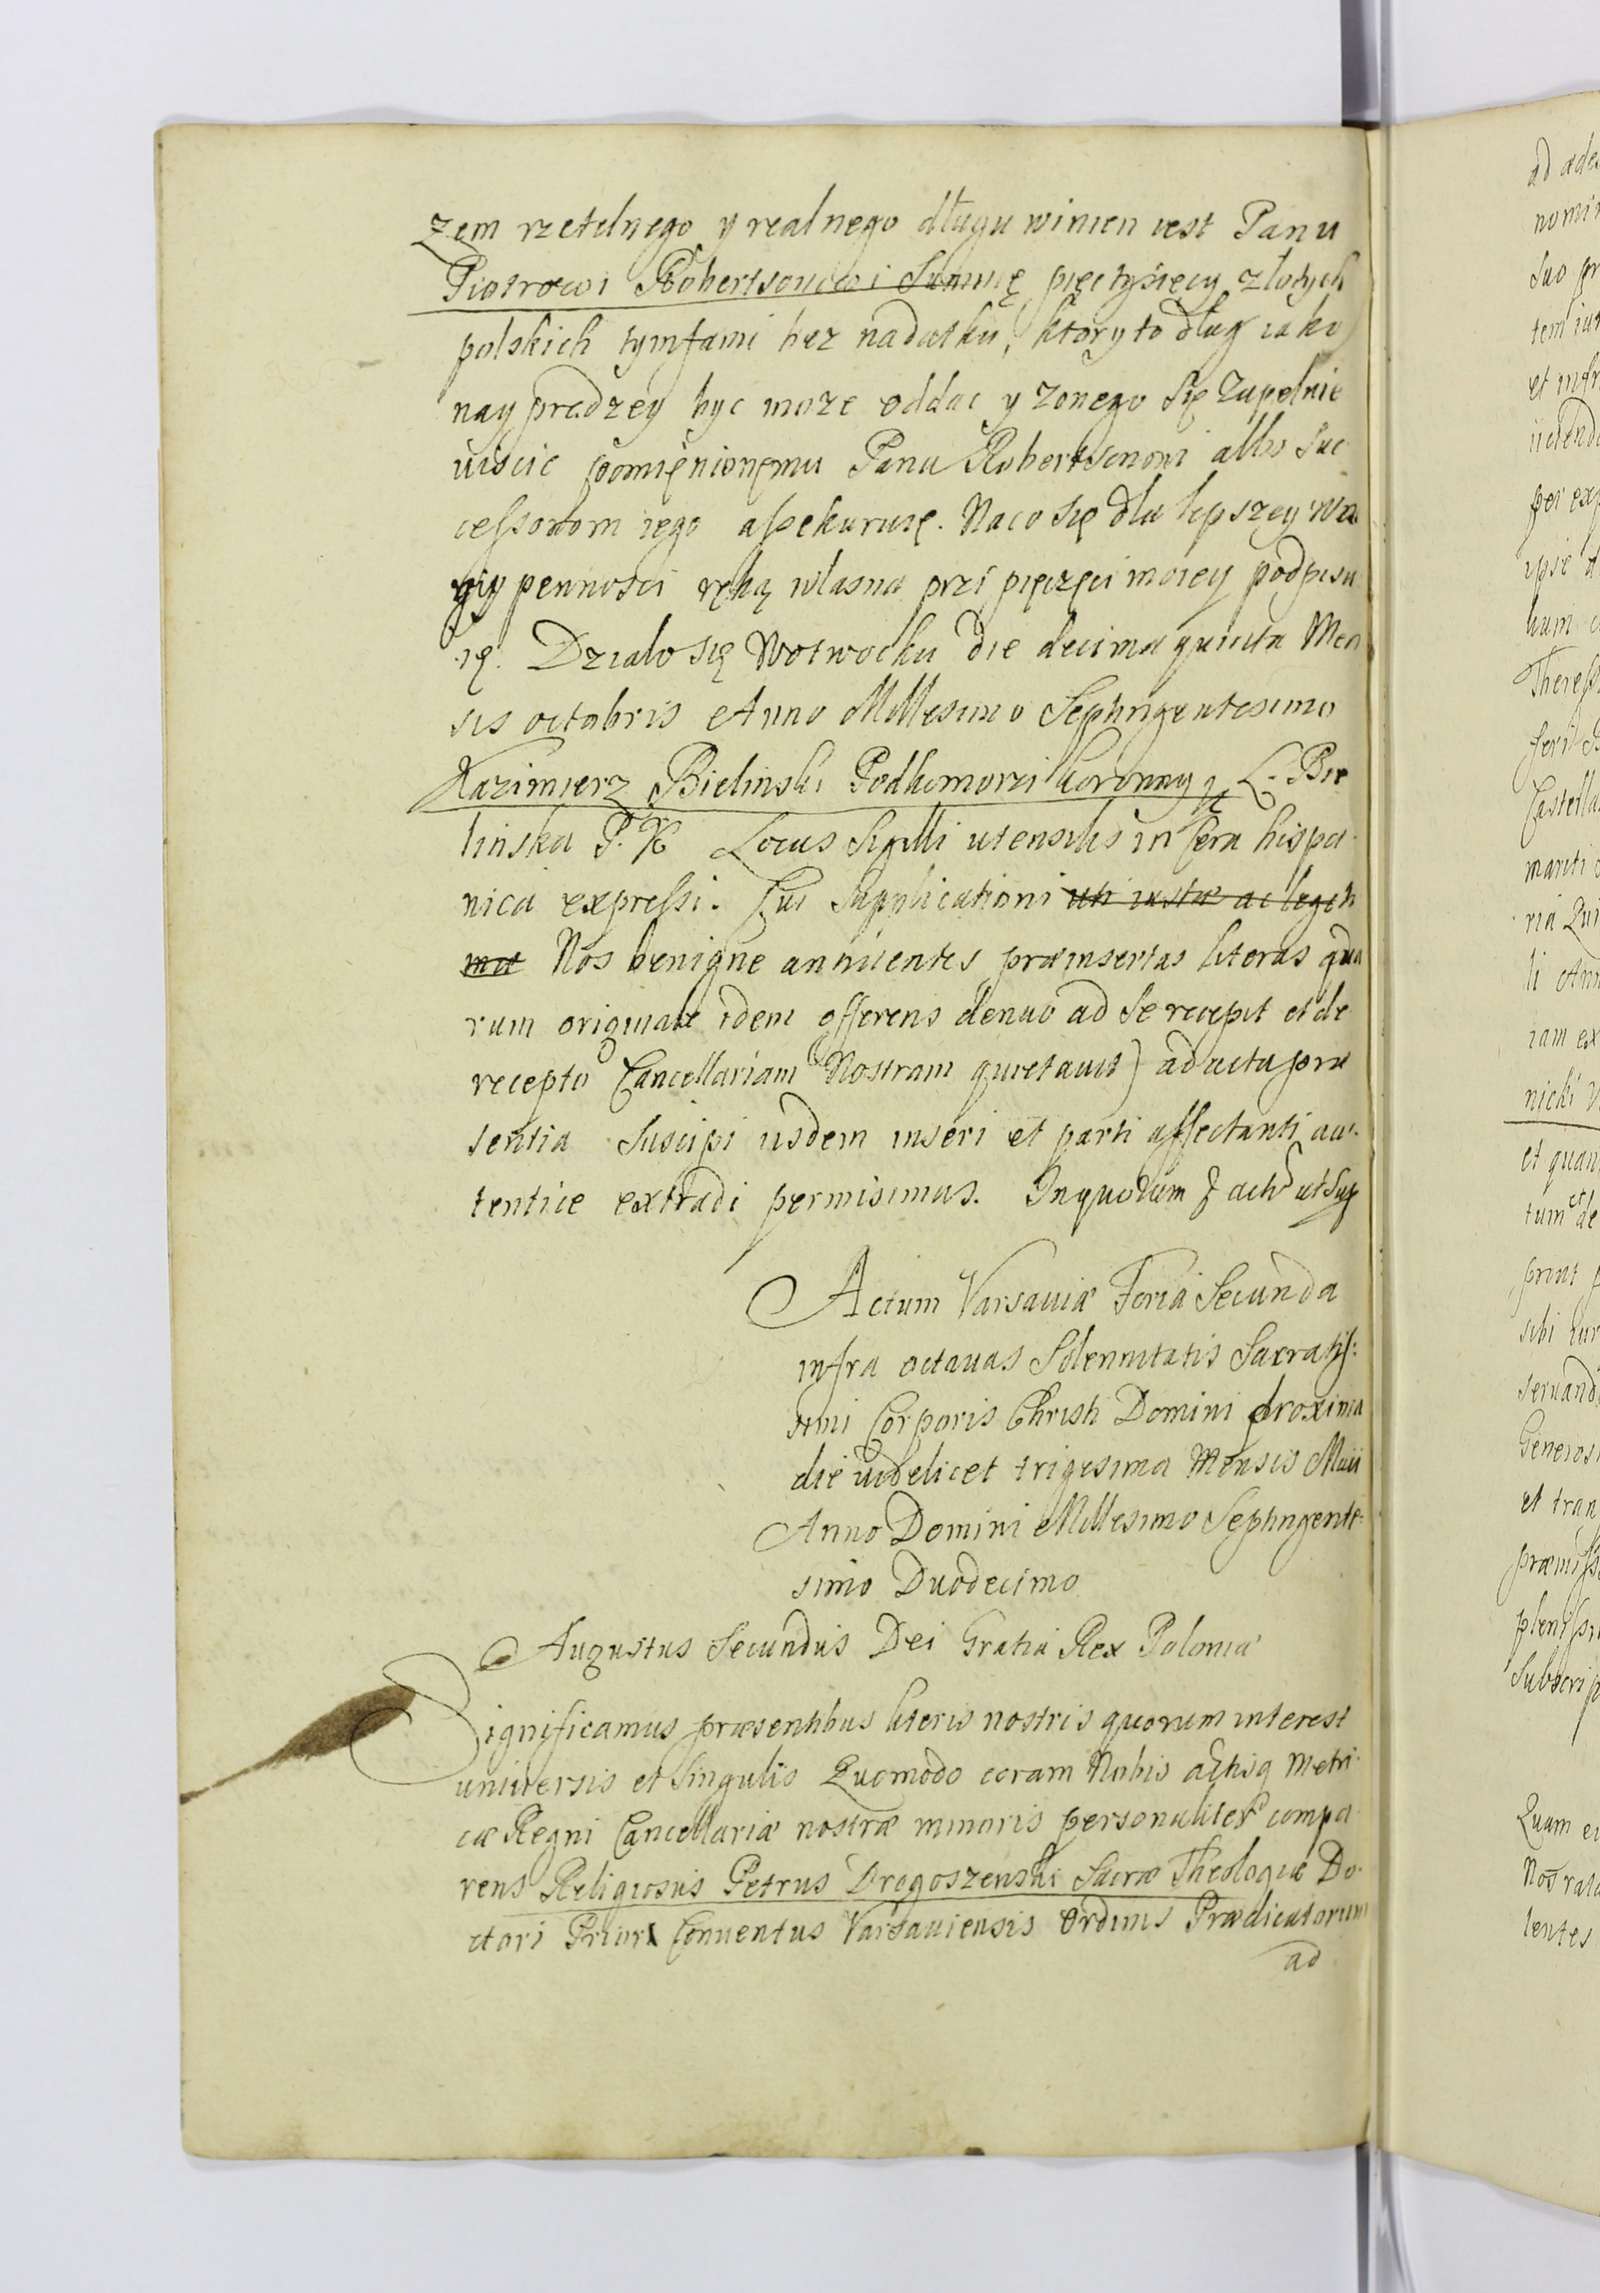 zem rzetelnego y realnego długu winien iest Panu
Piotrowi Robertsonowi Summę pięc tysięcy złotych
polskich tymfami bez nadatku, ktory to dług iako
nayprędzey byc moze oddac y zonego się zupełnie
uiscic pomięnionęmu Panu Robertsonowi albo Suc
cessorom iego assekuruię. Naco się dla lepszey wa
gy pewnosci ręką własna przi pięczęci moiey podpisu
ię. Działo się Wotwocku die decima quinta Men
sis octobris Anno Millesimo Septingentesimo
Kazimierz Bielinski Podkomorzi koronny y L. Bie
linska P. K Locus Sigilli utensilis in cera hispa
nica expressi. Cui Supplicationi uti iustæ ac legiti
mæ Nos benigne annuentes præinsertas literas qua
rum originale idem offerens denuo ad Se recepit et de
recepto Cancellariam Nostram quietauit) ad acta præ
sentia Suscipi iisdem inseri et parti affectanti au:
tentice extradi permisimus. Inquorum &
Actum Varsauiæ Feria Secunda
infra octauas Solennitatis Sacratis:
simi Corporis Christi Domini proxima
die uidelicet trigesima Mensis Maii
Anno Domini Millesimo Septingente:
simo Duodecimo
Augustus Secundus Dei Gratia Rex Poloniæ
Significamus præsentibus literis nostris quorum interest
uniuersis et Singulis Quomodo coram Nobis actisq Metri
cæ Regni Cancellariæ nostræ minoris personaliter compa
rens Religiosus Petrus Dregoszenski Sacræ Theologiæ Do
ctori Prior Conuentus Varsauiensis Ordinis Prædicatorum
ad
ad
nomin
suo pr
tem iur
et infr
per exp
ipsi
hum
Castella
mariti
ria Qui
li Ann
iam ex
nicki
et quan
tum et de
prout
sibi
seruand
Generosi
et tran
præmiss
Subscrip
Quam
Nos rata
lentes